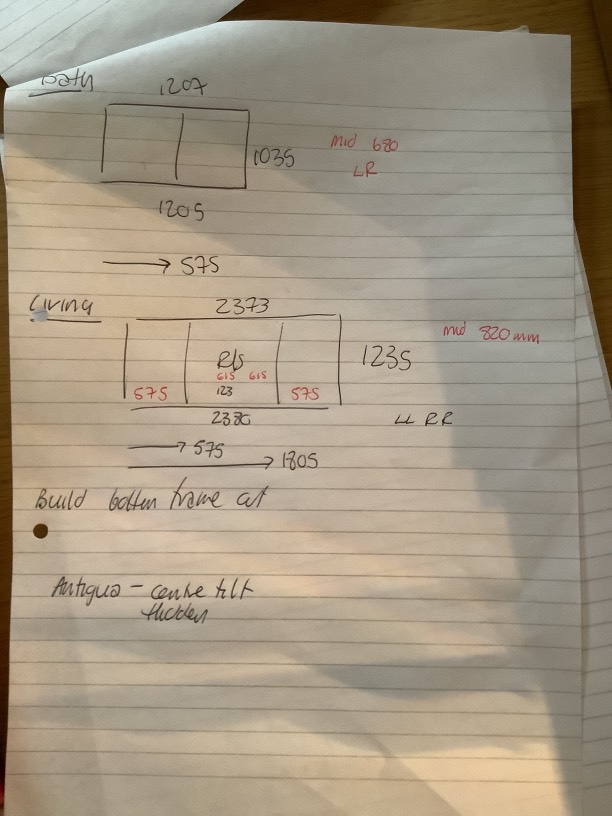 Bath
1207
1035
mid 680
LR
1205
575
Living
2373
mid 820mm
1235
R/s
615 615
575 123 575
2380
LL RR
575
1805
Build bottom frame at
Antigua - centre tilt
Hidden